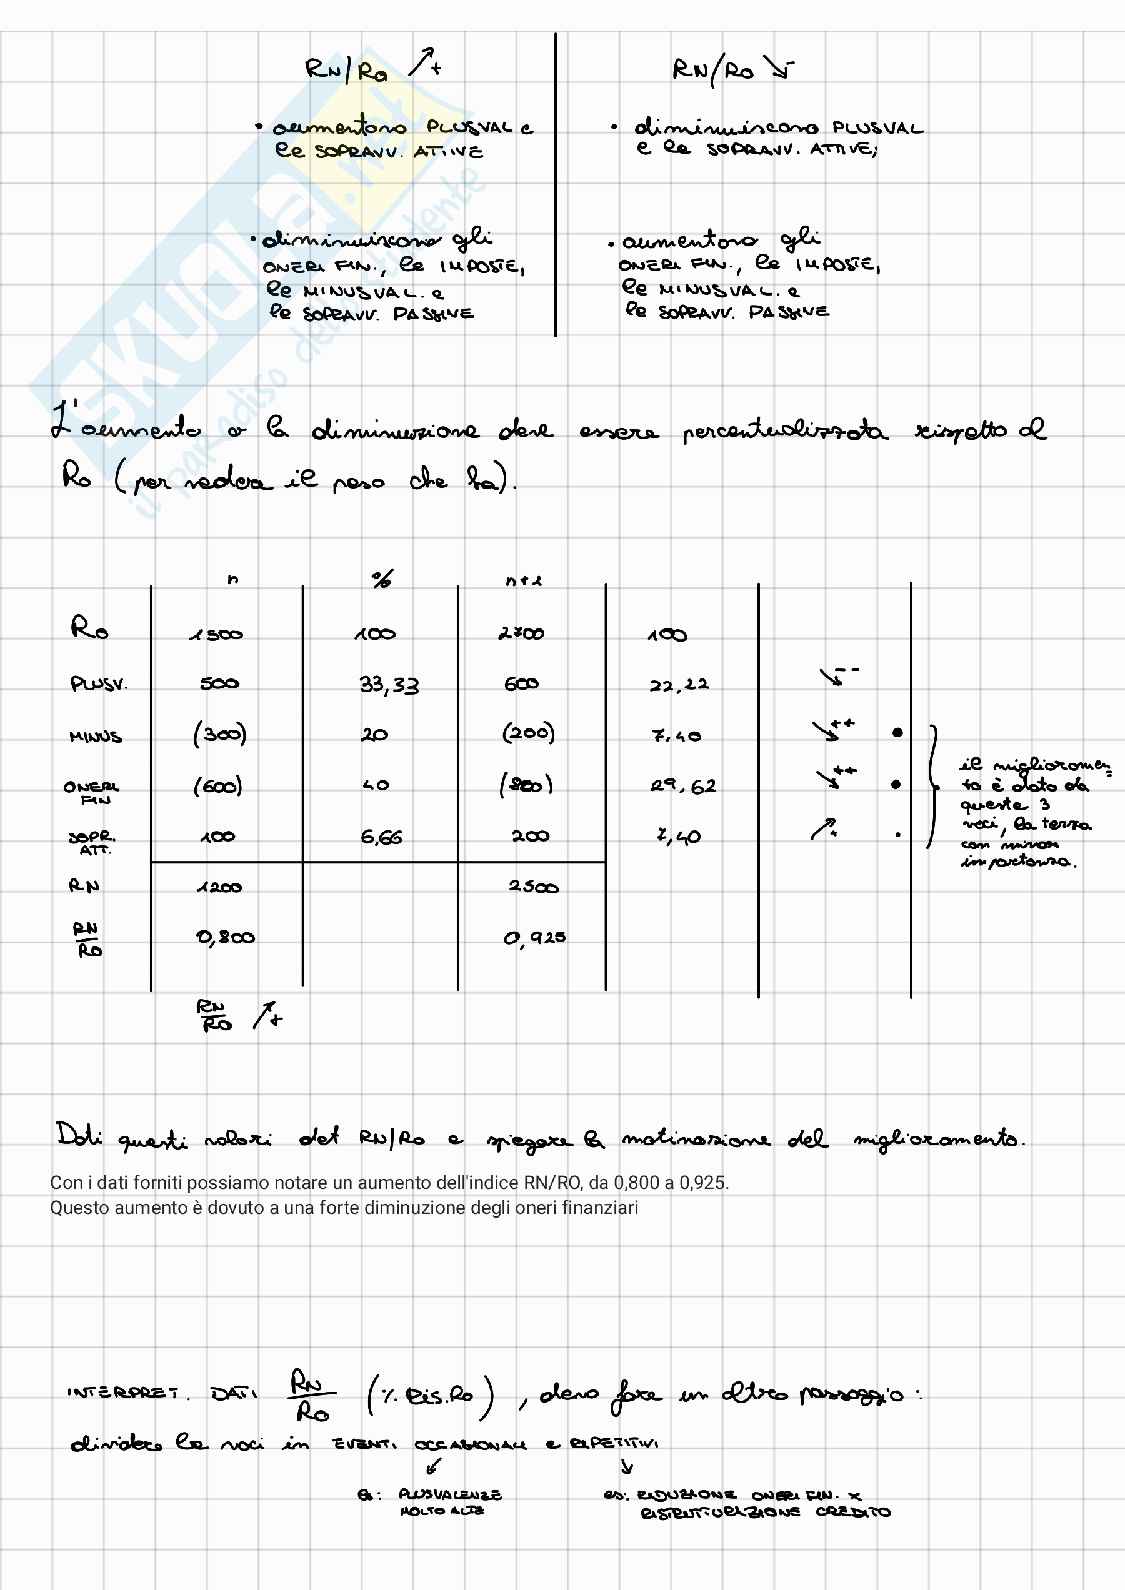 RN/RO ↗+
• aumentano PLUSVAL e
le SOPRAVV. ATTIVE
• diminuiscono gli
ONERI FIN., le IMPOSTE,
le MINUSVAL. e
le SOPRAVV. PASSIVE
RN/RO ↘-
• diminuiscono PLUSVAL
e le SOPRAVV. ATTIVE;
• aumentano gli
ONERI FIN., le IMPOSTE,
le MINUSVAL. e
le SOPRAVV. PASSIVE
SKUOLA.net
il paradiso dello studente
L'aumento o la diminuzione deve essere percentualizzata rispetto al
RO (per vedere il peso che ha).
n % n+1
RO 1500 100 2700 100
PLUSV. 500 33,33 600 22,22 ↘--
MINUS (300) 20 (200) 7,40 ↘++ •
ONERI FIN (600) 40 (800) 29,62 ↘++ •
SOPR. ATT. 100 6,66 200 7,40 ↗+ •
il miglioramen-
to è dato da
queste 3
voci, la terza
con minor
importanza.
RN 1200 2500
RN/RO 0,800 0,925
RN/RO ↗+
Dati questi valori del RN/RO e spiegare la motivazione del miglioramento.
Con i dati forniti possiamo notare un aumento dell'indice RN/RO, da 0,800 a 0,925.
Questo aumento è dovuto a una forte diminuzione degli oneri finanziari
INTERPRET. DATI RN/RO (% Ris.RO), devo fare un altro passaggio:
dividere le voci in EVENTI OCCASIONALI e RIPETITIVI
es: PLUSVALENZE
MOLTO ALTE
es: RIDUZIONE ONERI FIN. x
RISTRUTTURAZIONE CREDITO